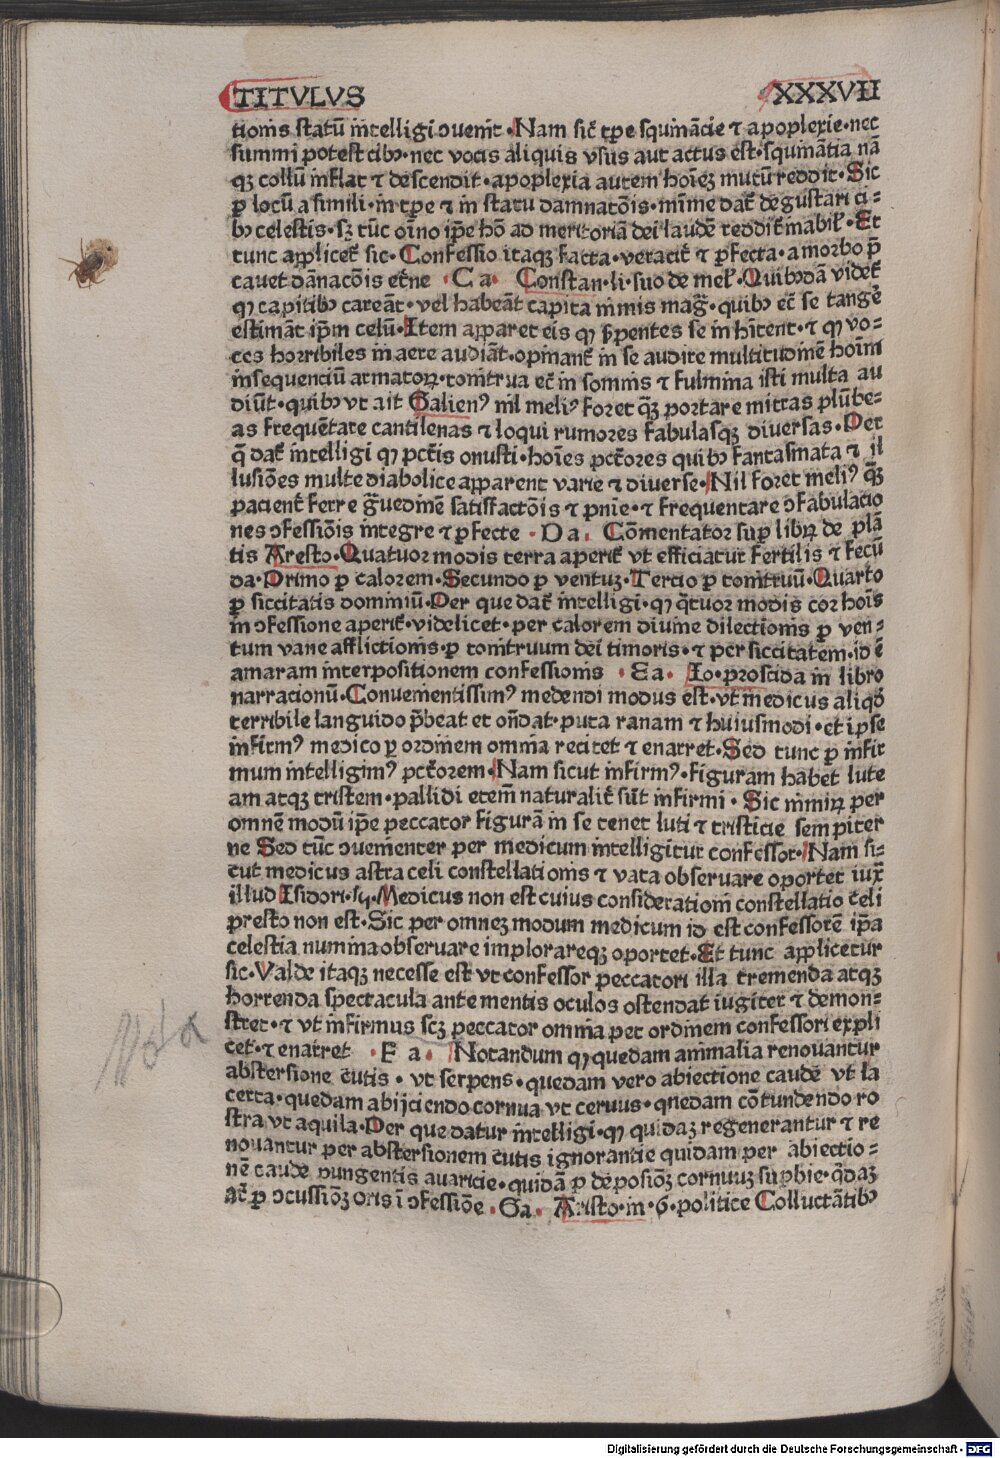 TITVLVS XXXVII
tionis statū intelligi ↄuenit · Nam sic̄ tp̄e squinācie ⁊ apoplexie · nec
summi potest cibꝰ · nec vocis aliquis vsus aut actus est · squinātia nā
qꝫ collū inflat ⁊ descendit · apoplexia autem hoīeꝫ mutū reddit · Sic
ꝑ locū a simili · in tp̄e ⁊ in statu damnatōis · mīme dat᷑ degustari ci⸗
bꝰ celestis · sꝫ tūc oīno ip̄e hō ad meritoriā dei laudē reddit᷑ inabił · Et
tunc applicet᷑ sic · Confessio itaqꝫ facta · veracit᷑ ⁊ ꝑfecta · a morbo p̄
cauet dānacōis et̄ne · C a · Constan · li · suo de mel̄ · Quibꝰdā videt᷑
ꝙ capitibꝰ careāt · vel habeāt capita nimis maḡ · quibꝰ ec̄ se tange᷑
estimāt ip̄m celū · Item apparet eis ꝙ ẜpentes se in hītent · ⁊ ꝙ vo⸗
ces horribiles in aere audiāt · opinant᷑ in se audire multitudinē hoīm
insequenciū armatoꝝ · tonitrua ec̄ in somnis ⁊ fulmina isti multa au
diūt · quibꝰ vt ait Galienꝰ nil meliꝰ foret q̄ꝫ portare mitras plūbe⸗
as frequētare cantilenas ⁊ loqui rumores fabulasqꝫ diuersas · Per
q̄ dat᷑ intelligi ꝙ pct̄is onusti · hoīes pct̄ores quibꝰ fantasmata ⁊ il
lusiōes multe diabolice apparent varie ⁊ diuerse · Nil foret meliꝰ q̄ꝫ
pacient᷑ ferre g̃uedinē satisfactōis ⁊ pn̄ie · ⁊ frequentare ↄfabulacio
nes ↄfessiōis integre ⁊ ꝑfecte · D a · Cōmentator suꝑ libꝝ de plā
tis Aresto · Quatuor modis terra aperit᷑ vt efficiatur fertilis ⁊ fecū
da · Primo ꝑ calorem · Secundo ꝑ ventuꝫ · Tercio ꝑ tonitruū · Quarto
ꝑ siccitatis dominiū · Per que dat᷑ intelligi · ꝙ q̄tuor modis cor hoīs
in ↄfessione aperit᷑ · videlicet · per calorem diuine dilectionis ꝑ ven⸗
tum vane afflictionis · ꝑ tonitruum dei timoris · ⁊ per siccitatem · id ē
amaram interpositionem confessionis · E a · Io · proscida in libro
narracionū · Conuenientissimꝰ medendi modus est · vt medicus aliqd̄
terribile languido p̄beat et on̄dat · puta ranam ⁊ huiusmodi · et ipse
infirmꝰ medico ꝑ ordinem omnia recitet ⁊ enarret · Sed tunc ꝑ infir
mum intelligimꝰ pct̄orem · Nam sicut infirmꝰ · figuram habet lute
am atqꝫ tristem · pallidi etem̄ naturalit᷑ sūt infirmi · Sic nimiꝝ per
omnē modū ip̄e peccator figurā in se tenet luti ⁊ tristicie sempiter
ne Sed tūc ↄuenienter per medicum intelligitur confessor · Nam si⸗
cut medicus astra celi constellationis ⁊ vata obseruare oportet iux̄
illud Isidori · Medicus non est cuius considerationi constellatio celi
presto non est · Sic per omneꝫ modum medicum id est confessorē ip̄a
celestia numina obseruare implorareqꝫ oportet · Et tunc applicetur
sic · Valde itaqꝫ necesse est vt confessor peccatori illa tremenda atqꝫ
horrenda spectacula ante mentis oculos ostendat iugiter ⁊ demon⸗
stret · ⁊ vt infirmus scꝫ peccator omnia per ordinem confessori expli
cet · ⁊ enarret · F a · Notandum ꝙ quedam animalia renouantur
abstersione cutis · vt serpens · quedam vero abiectione caude vt la
certa · quedam abijciendo cornua vt ceruus · quedam cōtundendo ro
stra vt aquila · Per que datur intelligi · ꝙ quidaꝫ regenerantur ⁊ re
nouantur per abstersionem cutis ignorantie quidam per abiectio⸗
nē caude pungentis auaricie · quidā ꝑ deposiōꝫ cornuuꝫ suꝑbie · q̄daꝫ
at᷑ ꝑ ↄcussiōꝫ oris ī ↄfessiōe · G a · Aristo · in · 6 · politice Colluctātibꝰ
Nota
Digitalisierung gefördert durch die Deutsche Forschungsgemeinschaft - DFG